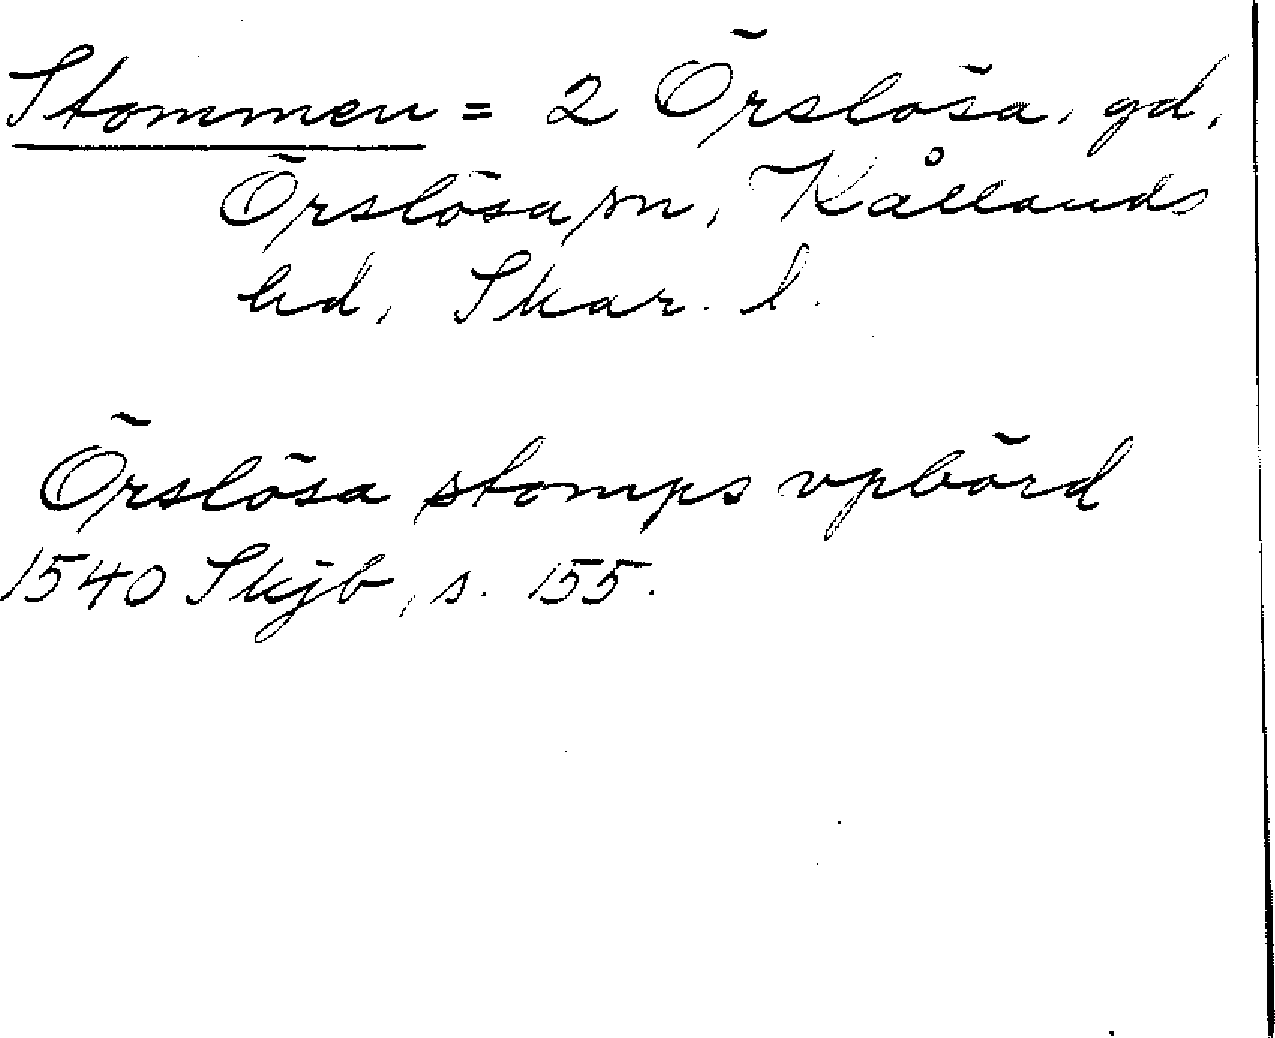 Stommen = 2 Örslösa, gd,
Örslösa sn, Kållands
hd, Skar. l.
Örslösa stomps vpbörd
1540 Skjb, s. 155.